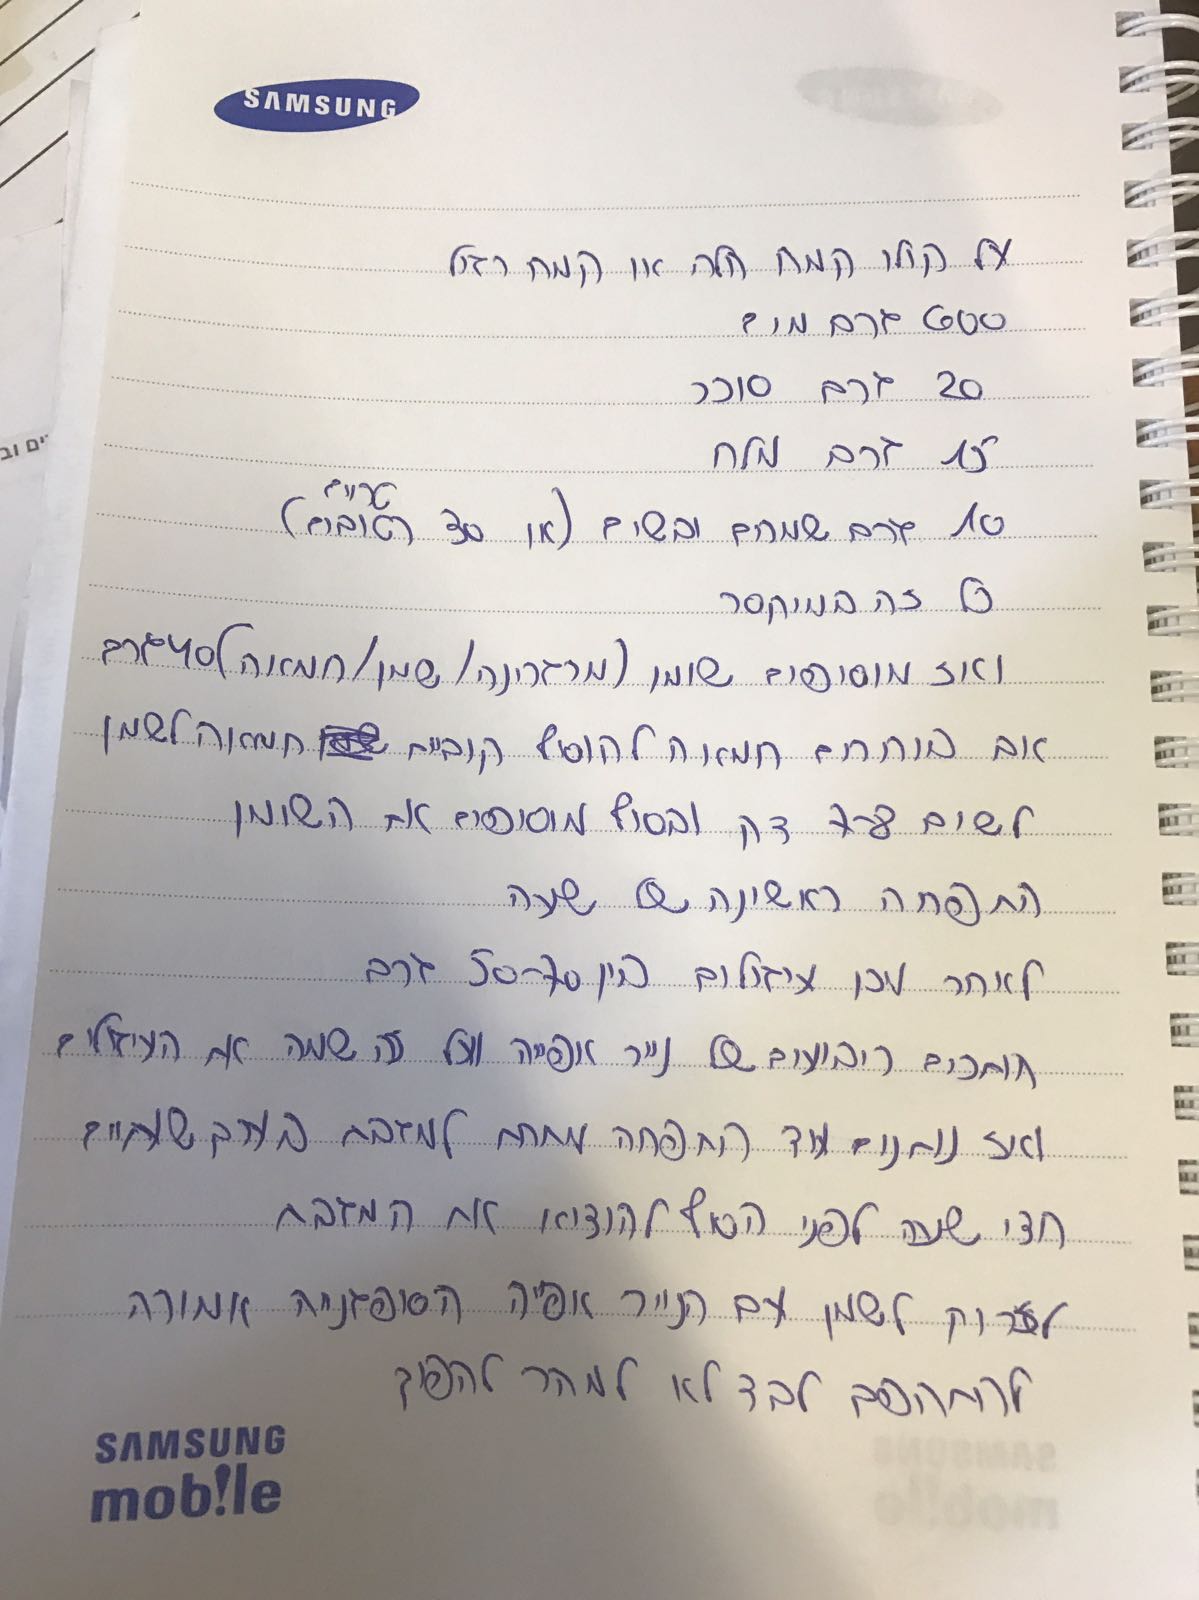 SAMSUNG
על קילו קמח חלה או קמח רגיל
600 גרם מים
20 גרם סוכר
15 גרם מלח
10 גרם שמרים יבשים (או 30 רטובים)
טריים
כל זה במיקסר
ואז מוסיפים שומן (מרגרינה/שמן/חמאה) 40 גרם
אם בוחרים חמאה להוסיף קוביית חמאה לשמן
לשים 7-8 דק ובסוף מוסיפים את השומן
התפחה ראשינה של שעה
לאחר מכן עיגולים בין 50-70 גרם
חותכים ריבועים של נייר אפייה ועל זה שמה את העיגולים
ואז נותנים עוד התפחה מתחת למגבת בערך שעתיים
חצי שעה לפני הסוף להוציא את המגבת
לזרוק לשמן עם הנייר אפיה הסופגנייה אמורה
להתהפך לבד לא למהר להפוך
SAMSUNG
mob!le
ים וב